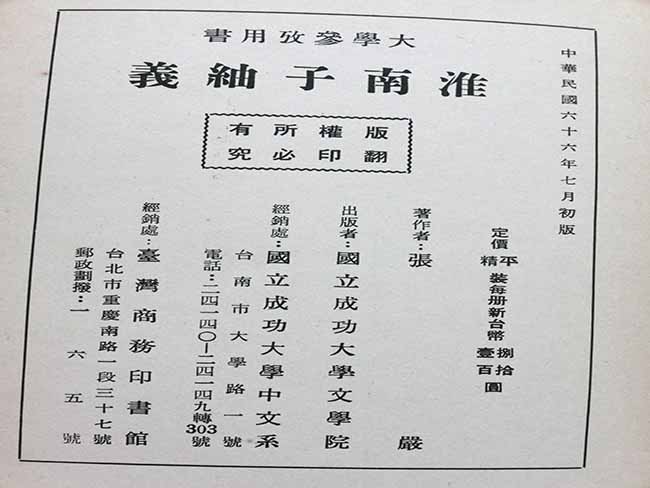 中華民國六十六年七月初版
大學參攷用書
淮南子紬義
版權所有
翻印必究
定價 平裝每册新台幣捌拾圓
精裝每册新台幣壹百圓
著作者：張嚴
出版者：國立成功大學文學院
經銷處：國立成功大學中文系
台南市大學路一號
電話：二四一四〇—二四一四九轉303號
經銷處：臺灣商務印書館
台北市重慶南路一段三十七號
郵政劃撥：一六五號